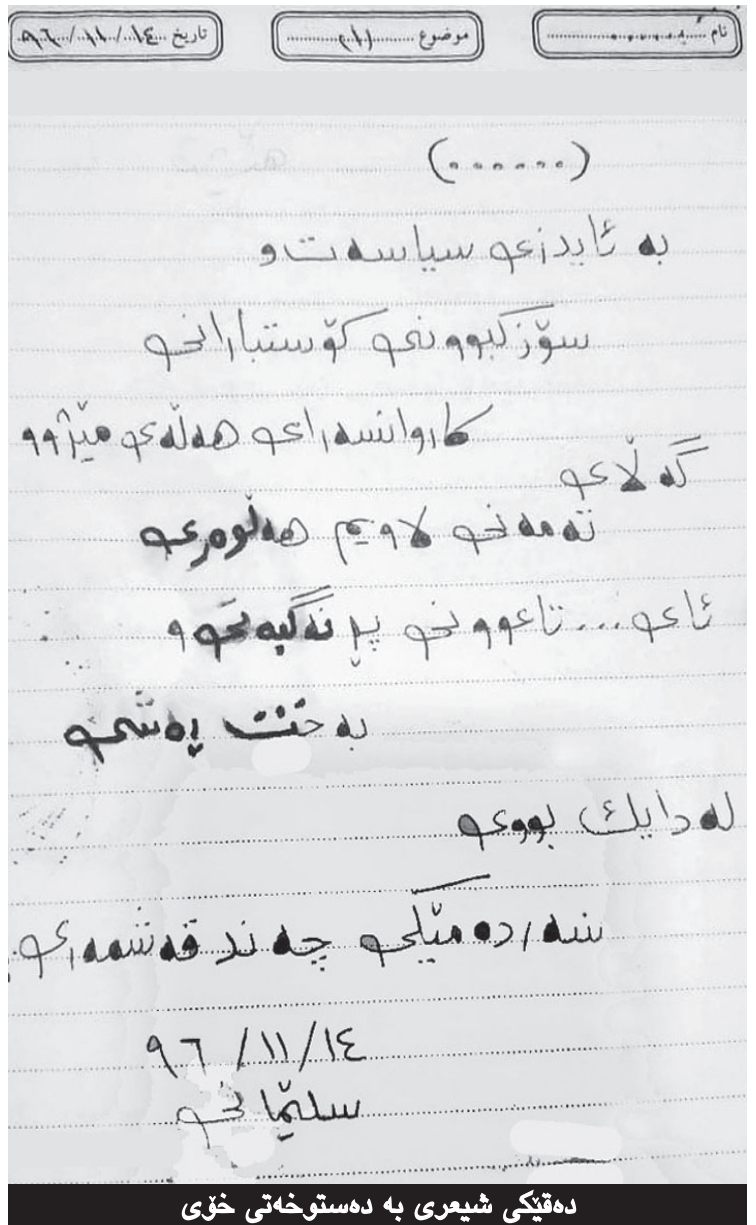 نام ........ موضوع ........ تاريخ ٩٦/١١/١٤
(......)
بە ئایدزی سیاسەت و
سۆزکبوونی کۆستبارانی
کاروانسەرای هەڵەی مێژوو
گەڵای
تەمەنی لاویم هەڵوەری
ئای... تاعوونی پڕ نەگبەتی و
بەخت ڕەشی
لەدایك بووی
سەردەمێکی چەند قەشمەری
٩٦/١١/١٤
سلێمانی
دەقێکی شیعری بە دەستوخەتی خۆی